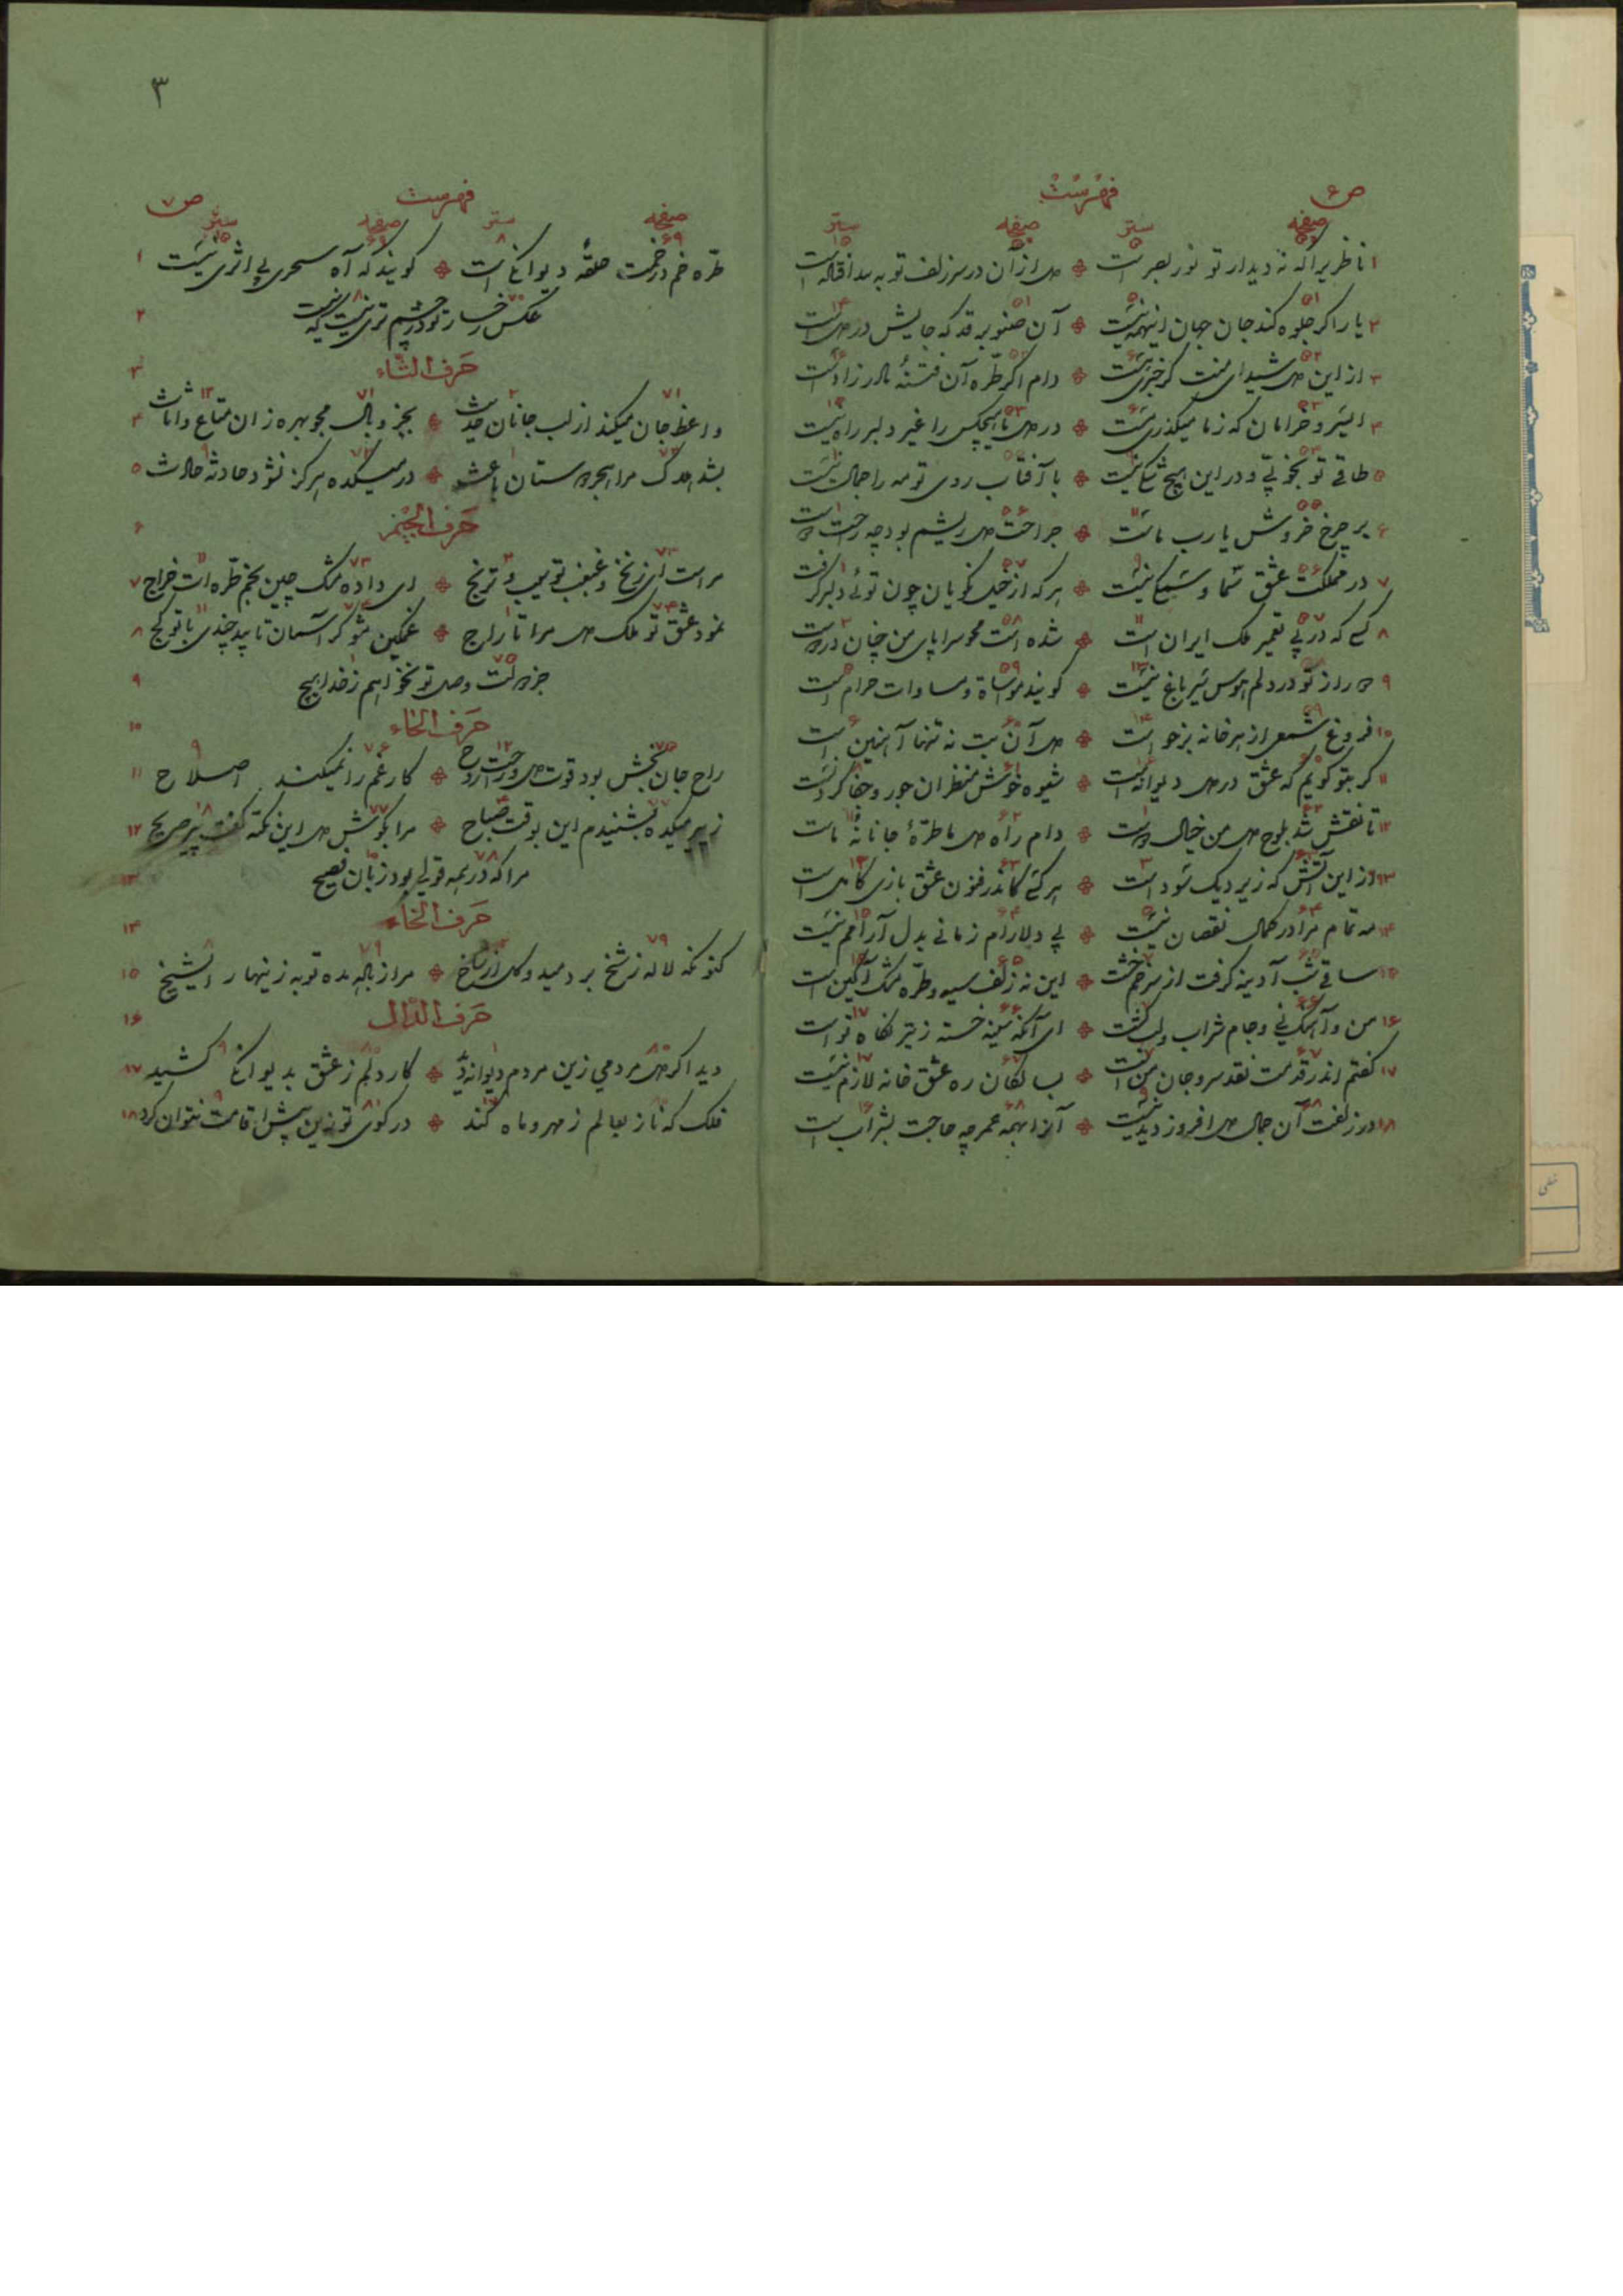 ص ۶
فهرست
صفحه سطر صفحه سطر
۱ ناظری را که نه دیدار تو نور بصر است ❖ دل از آن در سر زلف تو به
۲ یار اگر جلوه کند جان جهان اینهمه نیست ❖ آن صنوبر قد که جایش در دل است
۳ از این دل شیدای منت گر خبری نیست ❖ دام اگر طره آن فتنهٔ مادرزاد است
۴ ای سرو خرامان که ز ما میگذری نیست ❖ در دل ما هیچکس را غیر دلبر راه نیست
۵ طاقی تو بخوبی و در این هیچ شکی نیست ❖ با آفتاب روی تو مه را جمال نیست
۶ بر چرخ خروش یارب ماست ❖ جراحت دل ریشم بود چه راحت
۷ در مملکت عشق شما و سبکی نیست ❖ هر که از خیل نکویان چون توئی دلبر گرفت
۸ کسی که در پی تعمیر ملک ایران است ❖ شده است محو سراپای من چنان در دوست
۹ راز تو در دلم هوس سیر باغ نیست ❖ گویند مواساة و مساوات حرام است
۱۰ فروغ شمع از هر خانه برخواست ❖ دل آن بت نه تنها آهنین است
۱۱ گر بتو گویم که عشق در دل دیوانه است ❖ شیوه خوش منظران جور و جفا کردنست
۱۲ تا نقش شد بلوح دل من خیال دوست ❖ دام راه دل ما طرهٔ جانانهٔ ماست
۱۳ از این آتش که زیر دیک سوداست ❖ هر کسی کاندر فنون عشق بازی کامل است
۱۴ مه تمام مرا در کمال نقصان نیست ❖ بی دلارام زمانی بدل آرامم نیست
۱۵ ساقی شب آدینه گرفت از سر خم خشت ❖ این نه زلف سیه و طره مشک آگین است
۱۶ من و آهنگ نی و جام شراب و لب کشت ❖ ای آنکه سینه خسته ز تیر نگاه تو است
۱۷ گفتم اندر قدمت نقد سر و جان من است ❖ بسالکان ره عشق خانه لازم نیست
۱۸ در زلفت آن جمال دل افروز دیدنیست ❖ آنرا همه عمر چه حاجت بشراب است
۳
ص ۷
فهرست
صفحه سطر صفحه سطر
۱ طره خم در خمت حلقه دیوانگی است ❖ گویند که آه سحری بی اثری نیست
۲ عکس رخسار تو در چشم تری نیست که نیست
۳ حرف الثاء
۴ واعظ جان میکند از لب جانان حدیث ❖ بجز وبال مجو بهره زان متاع و اثاث
۵ بشد اندک مرا هجر دوستان باعث ❖ در میکده هرگز نشود حادثه حادث
۶ حرف الجیم
۷ مراست ای زنخ و غبغب تو سیب و ترنج ❖ ای داده مشک چین بخم طره ات خراج
۸ نمود عشق تو ملک دل مرا تاراج ❖ غمگین مشو گر آسمان تابید چندی با تو کج
۹ جز دولت وصل تو نخواهم ز خدا هیچ
۱۰ حرف الحاء
۱۱ راح جان بخش بود قوت دل و راحت روح ❖ کار غم را نمیکند اصلاح
۱۲ ز پیر میکده بشنیدم این بوقت صباح ❖ مرا بگوش دل این نکته گفت پیر صریح
۱۳ مرا که در همه قولی بود زبان فصیح
۱۴ حرف الخاء
۱۵ کنونکه لاله ز شخ بردمید و گل از شاخ ❖ مرا ز باده مده توبه زینهار ای شیخ
۱۶ حرف الدال
۱۷ دید اگر دل مردمی زین مردم دیوانه دید ❖ کار دلم ز عشق بدیوانگی کشید
۱۸ فلک که ناز بعالم ز مهر و ماه کند ❖ در کوی تو زین پیش اقامت نتوان کرد
خطی